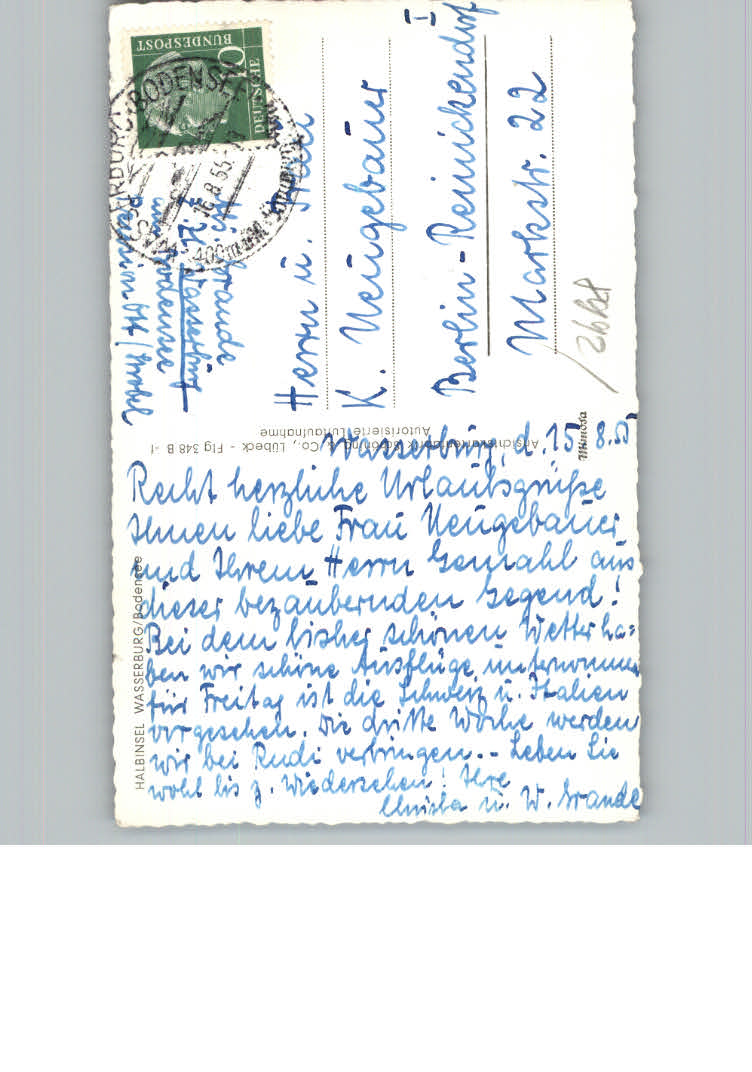 Wasserburg, d. 15. 8. 55
Recht herzliche Urlaubsgrüße
Ihnen liebe Frau Neugebauer
und Ihrem Herrn Gemahl aus
dieser bezaubernden Gegend!
Bei dem bisher schönen Wetter ha=
ben wir schöne Ausflüge unternommen
für Freitag ist die Schweiz u. Italien
vorgesehen. Die dritte Woche werden
wir bei Rudi verbringen. - Leben Sie
wohl bis z. Wiedersehen! Ihre
Christa u. W. Grande
HALBINSEL WASSERBURG/Bodensee
Ansichtskartenfabrik Schöning & Co., Lübeck - Flg 348 B -f
Autorisierte Luftaufnahme
Mimosa
DEUTSCHE
BUNDESPOST
BODENSEE
16.8.55
Grande
z. Zt. Wasserburg
am Bodensee
Herrn u. Frau
K. Neugebauer
Berlin-Reinickendorf
Markstr. 22